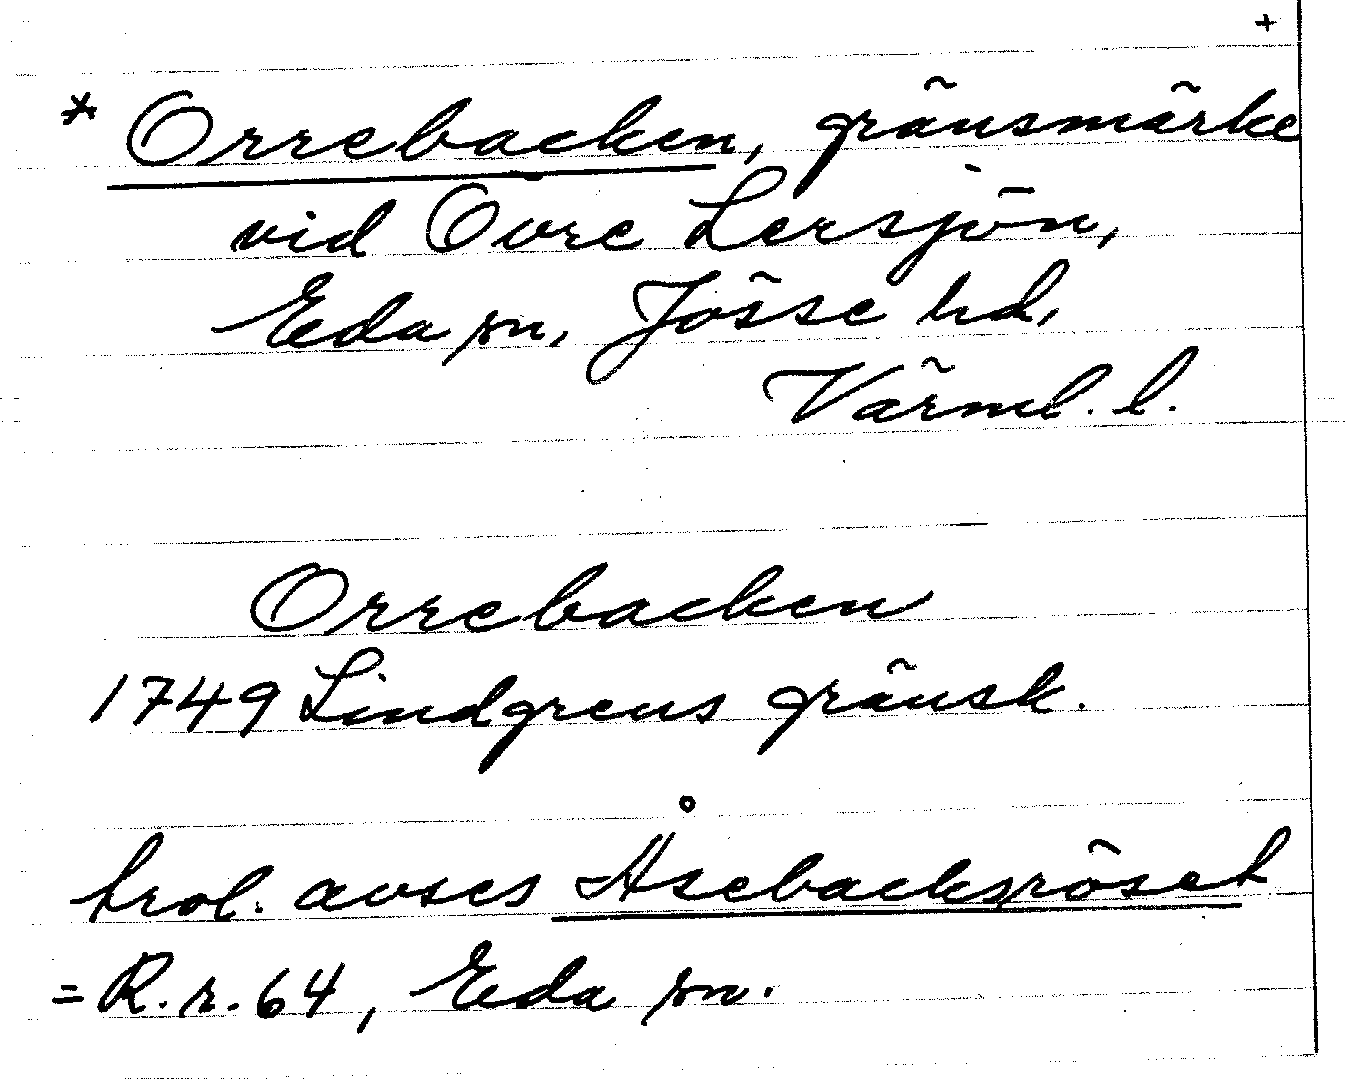 +
* Orrebacken, gränsmärke
vid Övre Lersjön,
Eda sn, Jösse hd,
Värml. l.
Orrebacken
1749 Lindgrens gränsk.
trol. avses Åsebacksröset
= R. r. 64, Eda sn.